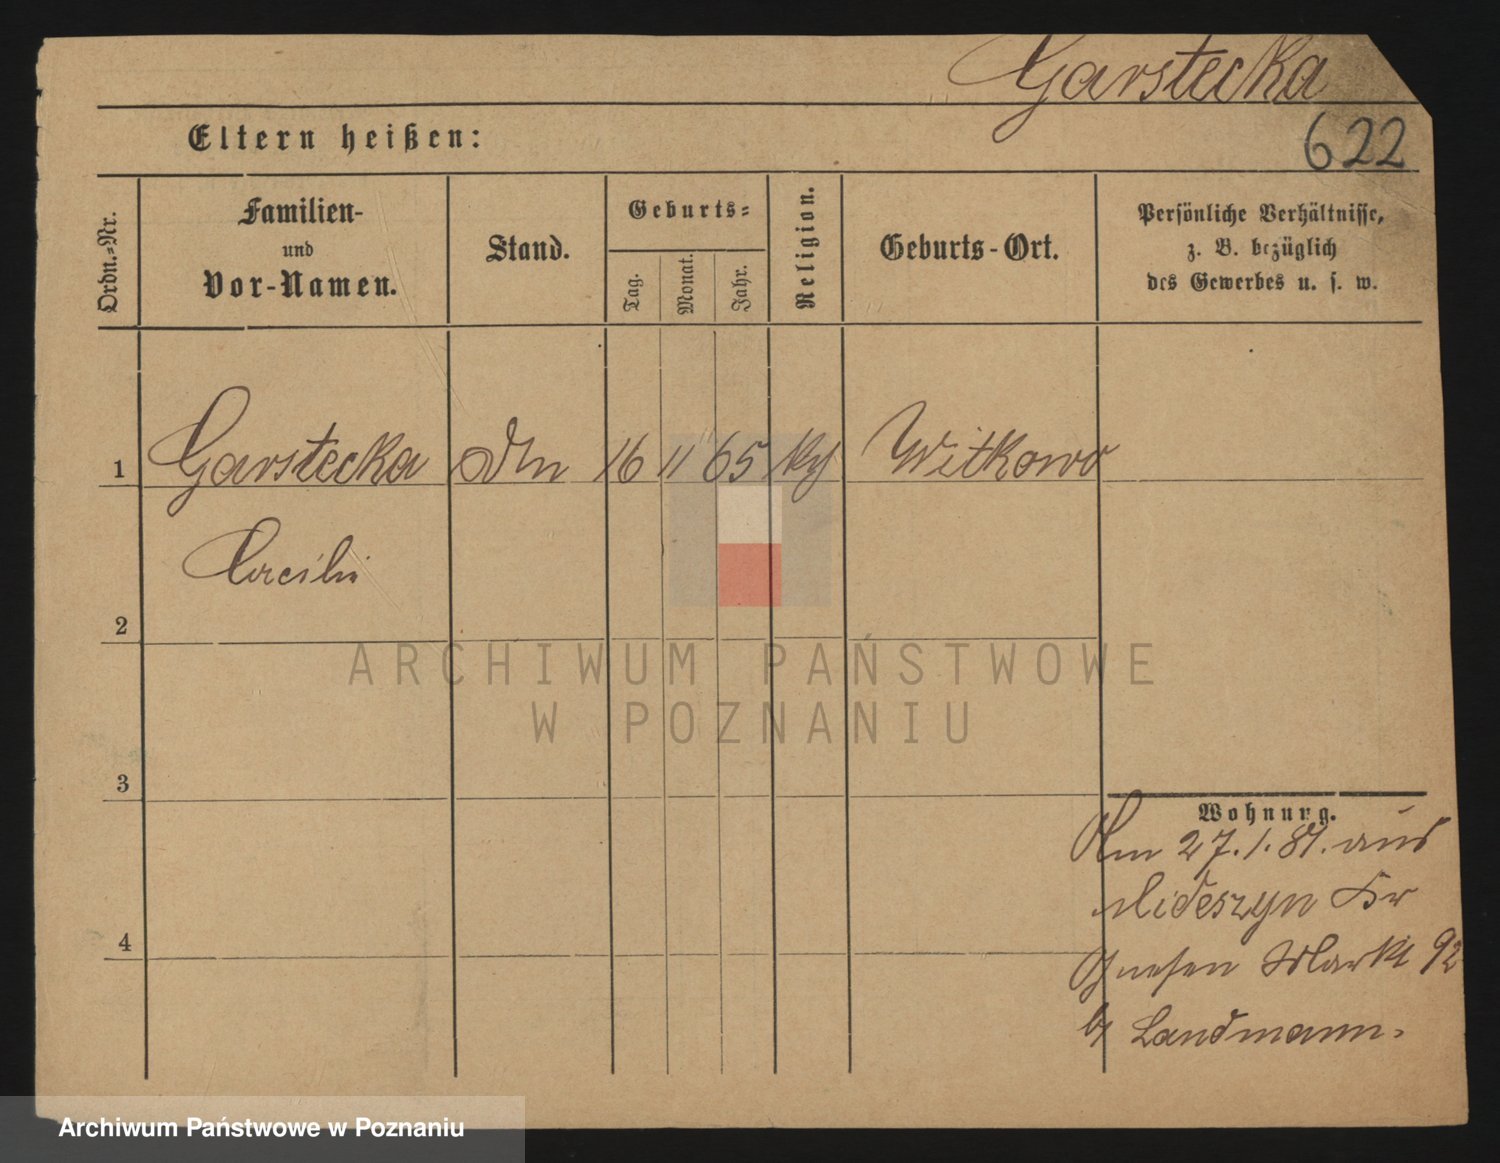 Garstecka
Eltern heißen:
622
Ordn.-Nr.
Familien-
und
Vor-Namen.
Stand.
Geburts-
Tag.
Monat.
Jahr.
Religion.
Geburts-Ort.
Persönliche Verhältnisse,
z. B. bezüglich
des Gewerbes u. s. w.
1 Garstecka 16 11 65 Witkowo
2
3
4
Wohnung.
Am 27.1.87. aus
Kr
Gnesen Markt 92
b/ Landmann.
ARCHIWUM PAŃSTWOWE
W POZNANIU
Archiwum Państwowe w Poznaniu